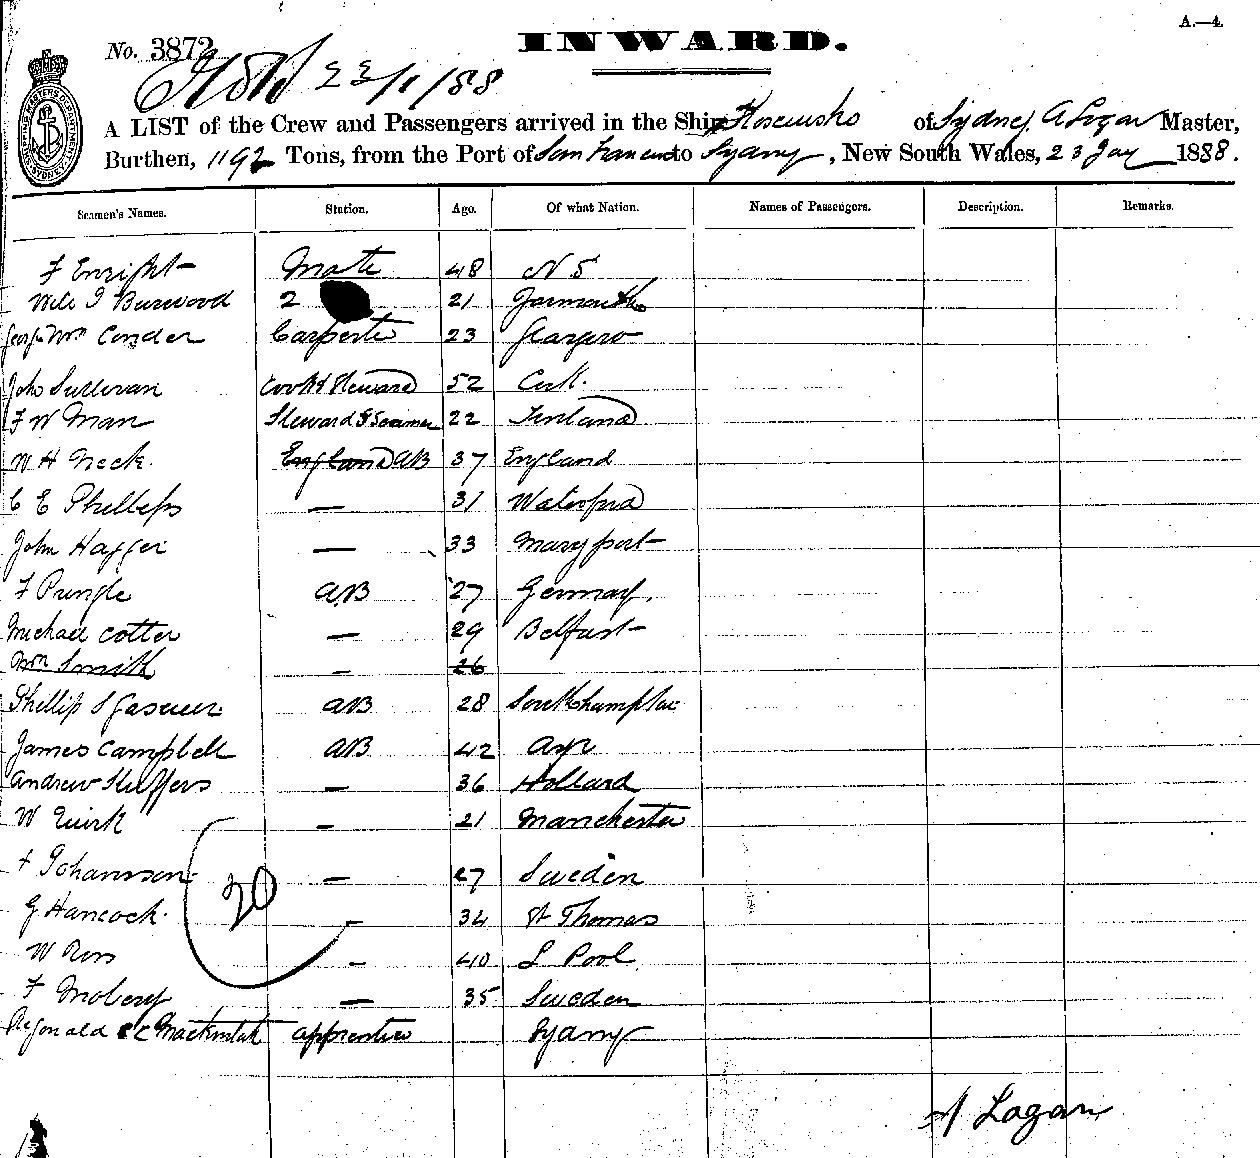 A.—4.
INWARD.
No. 3872
23/1/88
A LIST of the Crew and Passengers arrived in the Ship Kosciusko of Sydney, A Logan Master,
Burthen, 1192 Tons, from the Port of San Francisco to Sydney, New South Wales, 23 Jany 1888.
Seamen's Names. Station. Age. Of what Nation. Names of Passengers. Description. Remarks.
F Enright Mate 48 N S
Burwood 2 21 Yarmouth
Wm Conder Carpenter 23 Glasgow
John Sullivan Cook & Steward 52 Cork.
F W Man Steward & Seaman 22 Finland
W H Neck. England AB 37 England
C E Phillips — 31 Waterford
John — 33 Maryport
F AB 27 Germany.
Michael Cotter — 29 Belfast
Wm Smith — 26
Phillip S AB 28 Southampton
James Campbell AB 42 Ayr
Andrew — 36 Holland
W Quirk — 21 Manchester
F Johannson — 27 Sweden
G Hancock. — 34 St Thomas
W Ross — 40 L Pool
F Moberg — 35 Sweden
Reginald Mackintosh apprentice Sydney
20
A Logan